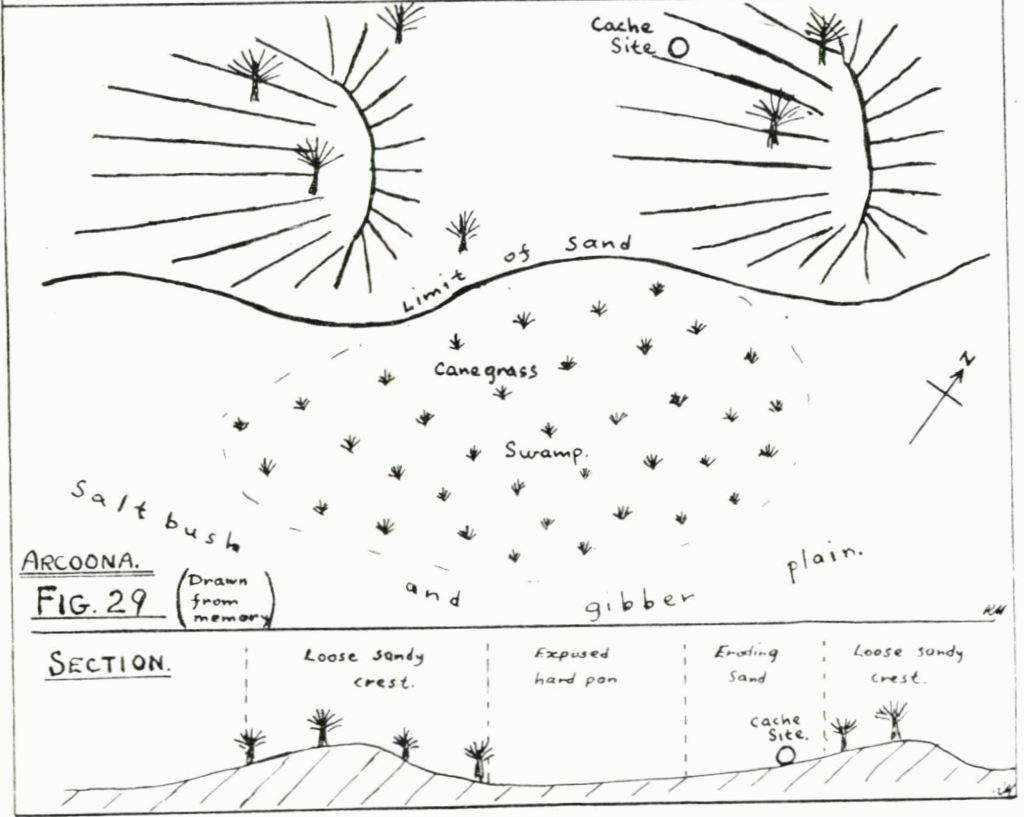 Cache
Site
Limit of sand
Canegrass
Swamp.
N
Saltbush and gibber plain.
ARCOONA.
FIG. 29
(Drawn
from
memory)
SECTION.
Loose sandy
crest.
Exposed
hard pan
Eroding
Sand
Loose sandy
crest.
Cache
Site.